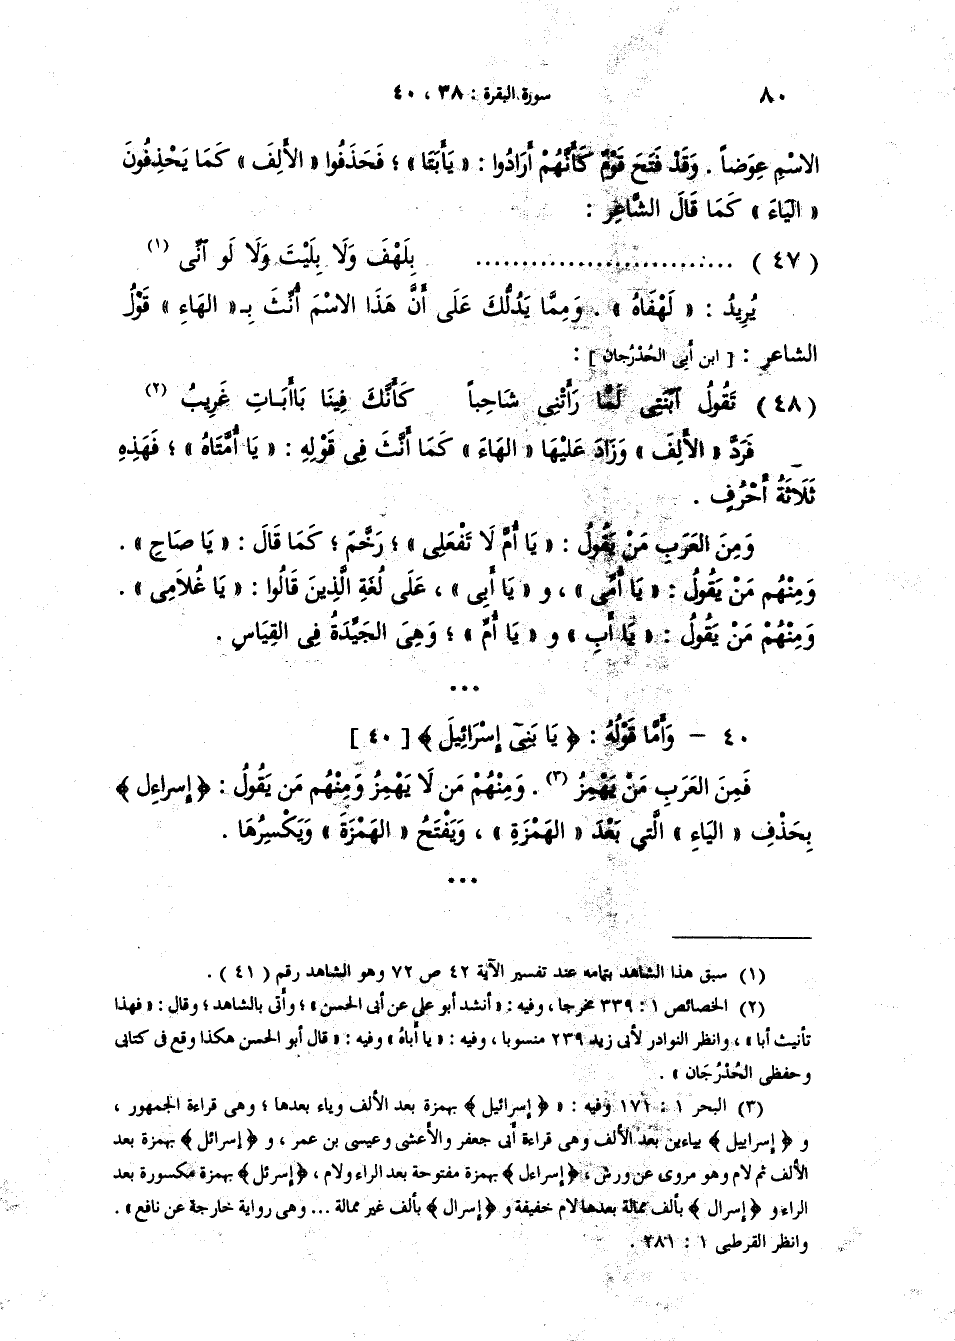 ٨٠ سورة البقرة : ٣٨ ، ٤٠
الاسْمِ عِوَضاً . وَقَدْ فَتَحَ قَوْمٌ كَأَنَّهُمْ أَرَادُوا : « يَأَبَتَا » ؛ فَحَذَفُوا « الأَلِفَ » كَمَا يَحْذِفُونَ
« اليَاءَ » كَمَا قَالَ الشَّاعِرِ :
( ٤٧ ) ............................ بِلَهْفَ وَلَا بِلَيْتَ وَلَا لَو آنِّى (١)
يُرِيدُ : « لَهْفَاهُ » . وَمِمَّا يَدُلُّكَ عَلَى أَنَّ هَذَا الاسْمَ أُنِّثَ بِـ « الهَاءِ » قَوْلُ
الشاعرِ : [ ابن أَبِى الحُدْرُجان ] :
( ٤٨ ) تَقُولُ آبْنَتِى لَمَّا رَأَتْنِى شَاحِباً كَأَنَّكَ فِينَا يَاأَبَـاتِ غَرِيبُ (٢)
فَرَدَّ « الأَلِفَ » وَزَادَ عَلَيْهَا « الهَاءَ » كَمَا أَنَّثَ فِى قَوْلِهِ : « يَا أُمَّتَاهُ » ؛ فَهَذِهِ
ثَلَاثَةُ أَحْرُفٍ .
وَمِنَ العَرَبِ مَنْ يَقُولُ : « يَا أُمَّ لَا تَفْعَلِى » ؛ رَخَّمَ ؛ كَمَا قَالَ : « يَا صَاحِ » .
وَمِنْهُم مَنْ يَقُولُ : « يَا أُمِّى » ، و « يَا أَبِى » ، عَلَى لُغَةِ الَّذِينَ قَالُوا : « يَا غُلَامِى » .
وَمِنْهُمْ مَنْ يَقُولُ : « يَا أَبِ » و « يَا أُمِّ » ؛ وَهِىَ الجَيِّدَةُ فِى القِيَاسِ .
•••
٤٠ – وَأَمَّا قَوْلُهُ : ﴿ يَا بَنِىٓ إِسْرَائِيلَ ﴾ [ ٤٠ ]
فَمِنَ العَرَبِ مَنْ يَهْمِزُ (٣) . وَمِنْهُمْ مَن لَا يَهْمِزُ وَمِنْهُم مَن يَقُولُ : ﴿ إِسراءِل ﴾
بِحَذْفِ « اليَاءِ » الَّتِى بَعْدَ « الهَمْزَةِ » ، وَيَفْتَحُ « الهَمْزَةَ » وَيَكْسِرُهَا .
•••
(١) سبق هذا الشاهد بتمامه عند تفسير الآية ٤٢ ص ٧٢ وهو الشاهد رقم ( ٤١ ) .
(٢) الخصائص ١ : ٣٣٩ مخرجا ، وفيه : « أنشد أبو على عن أبى الحسن » ؛ وأتى بالشاهد ؛ وقال : « فهذا
تأنيث أبا » ، وانظر النوادر لأبى زيد ٢٣٩ منسوبا ، وفيه : « يا أباهُ » وفيه : « قال أبو الحسن هكذا وقع فى كتابى
وحفظى الحُدْرُجَان » .
(٣) البحر ١ : ١٧١ وفيه : « ﴿ إسرائيل ﴾ بهمزة بعد الألف وياء بعدها ؛ وهى قراءة الجمهور ،
و ﴿ إسراييل ﴾ بياءين بعد الألف وهى قراءة أبى جعفر والأعشى وعيسى بن عمر ، و ﴿ إسرائل ﴾ بهمزة بعد
الألف ثم لام وهو مروى عن ورش ، ﴿ إسراءَل ﴾ بهمزة مفتوحة بعد الراء ولام ، ﴿ إسرئل ﴾ بهمزة مكسورة بعد
الراء و ﴿ إسرال ﴾ بألف ممالة بعدها لام خفيفة و ﴿ إسرال ﴾ بألف غير ممالة ... وهى رواية خارجة عن نافع » .
وانظر القرطبى ١ : ٢٨١ .